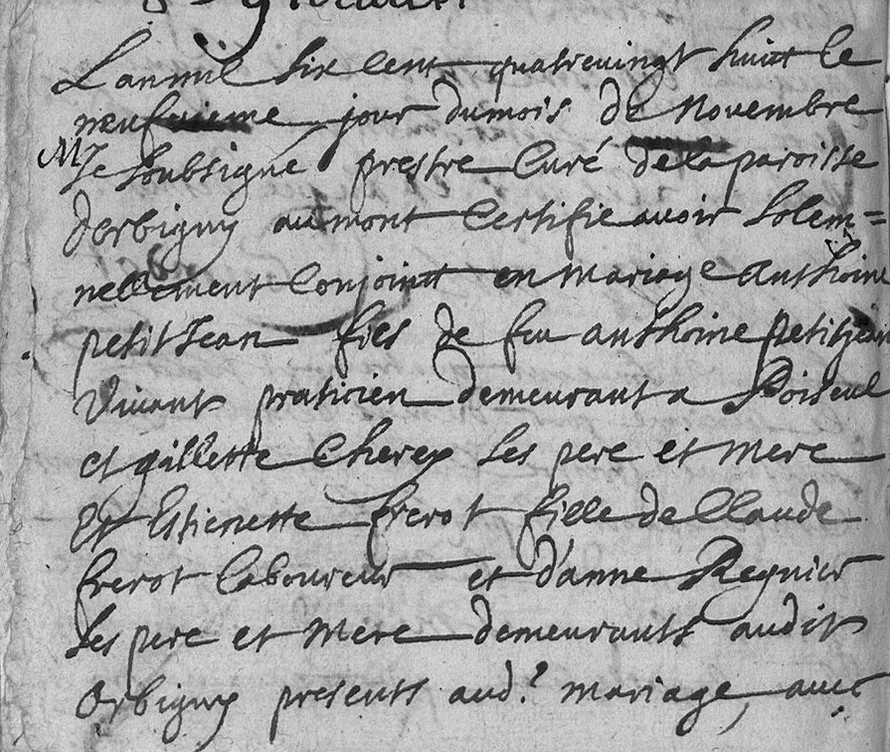 L'an mil six cent quatre vingt huict le
neufvieme jour du mois de Novembre
M Je soubsigné prestre curé de la paroisse
dorbigny au mont certifie avoir solem=
nellement conjoint en mariage Anthoine
petitJean fils de feu anthoine petitjean
vivant praticien demeurant a Poiseul
et gillette cherey ses pere et mere
Et Estienette frerot fille de Claude
frerot laboureur et d'anne Regnier
ses pere et mere demeurants audit
Orbigny presents aud.t mariage, avec